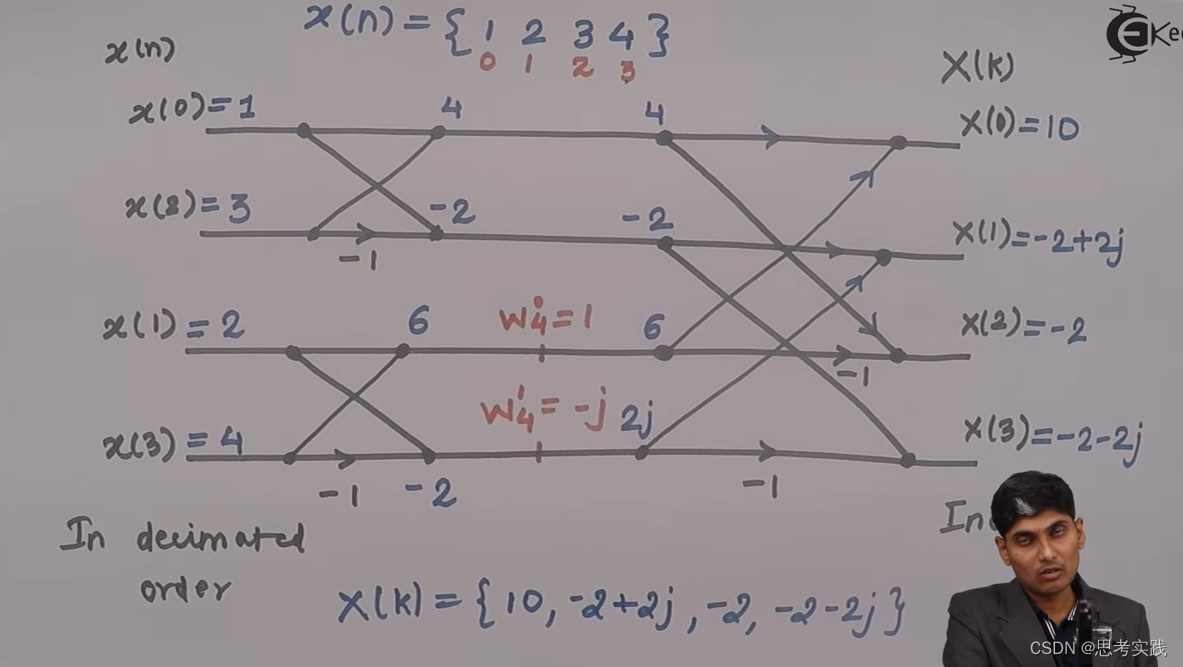 x(n) = { 1 2 3 4 }
0 1 2 3
x(n)
X(k)
x(0)=1
4
4
X(0)=10
x(2)=3
-2
-2
X(1)=-2+2j
-1
x(1)=2
6
W₄⁰=1
6
X(2)=-2
-1
x(3)=4
W₄¹=-j
2j
X(3)=-2-2j
-1
-2
-1
In decimated
order
X(k) = { 10, -2+2j, -2, -2-2j }
CSDN @思考实践